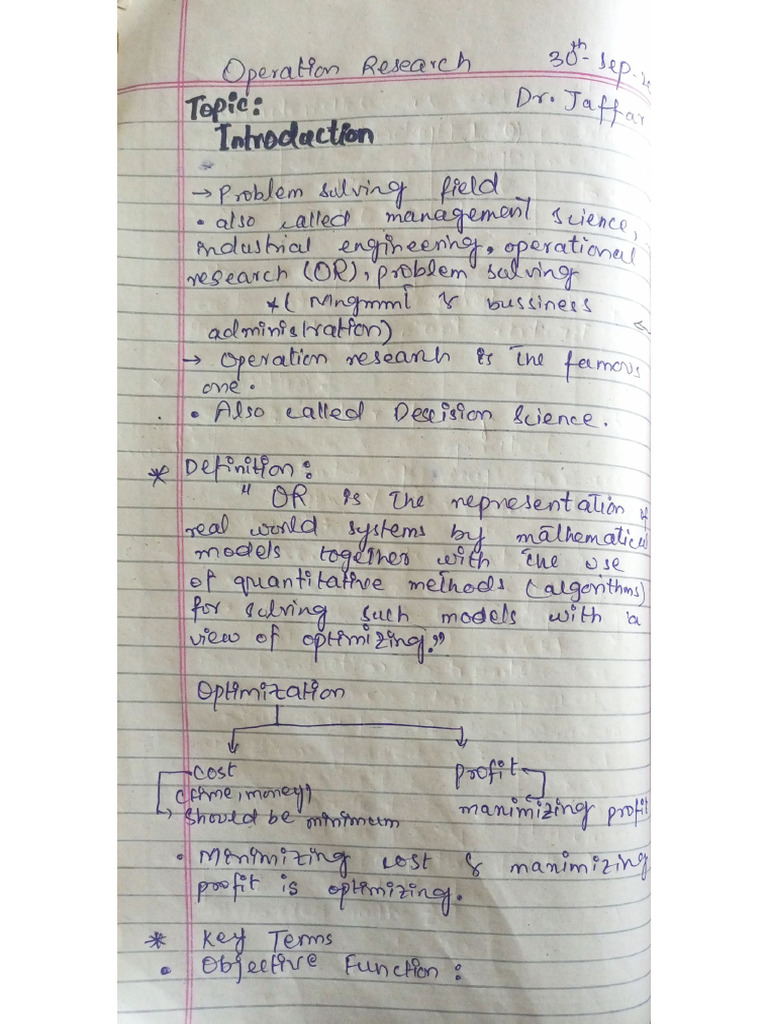 Operation Research 30th - Sep. 20
Topic: Dr. Jaffar
Introduction
→ Problem solving field
• also called management science,
industrial engineering, operational
research (OR), problem solving
*( Mngmmt & bussiness
administration)
→ Operation research is the famous
one.
• Also called Descision Science.
* Definition:
" OR is the representation of
real world systems by mathematical
models together with the use
of quantitative methods (algorithms)
for solving such models with a
view of optimizing."
Optimization
cost profit
(time, money) maximizing profit
should be minimum
• Minimizing cost & maximizing
profit is optimizing.
* Key Terms
• Objective Function: